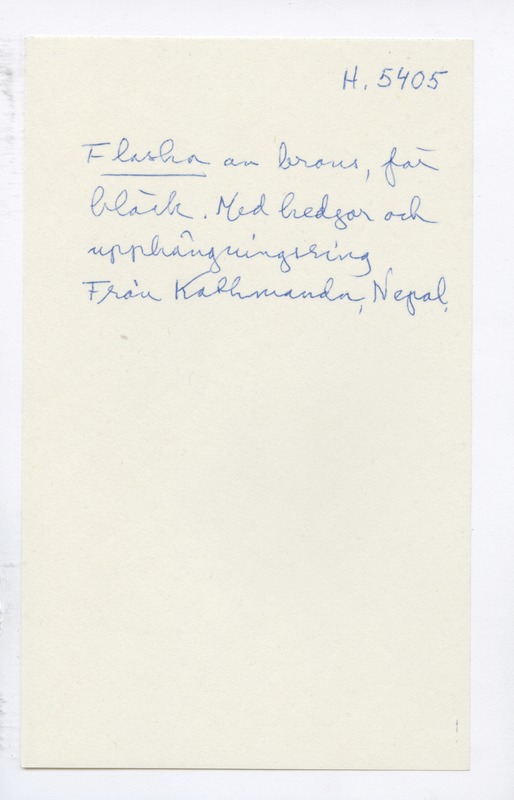 H. 5405
Flaska av brons, för
bläck. Med kedjor och
upphängningsring
Från Kathmandu, Nepal.